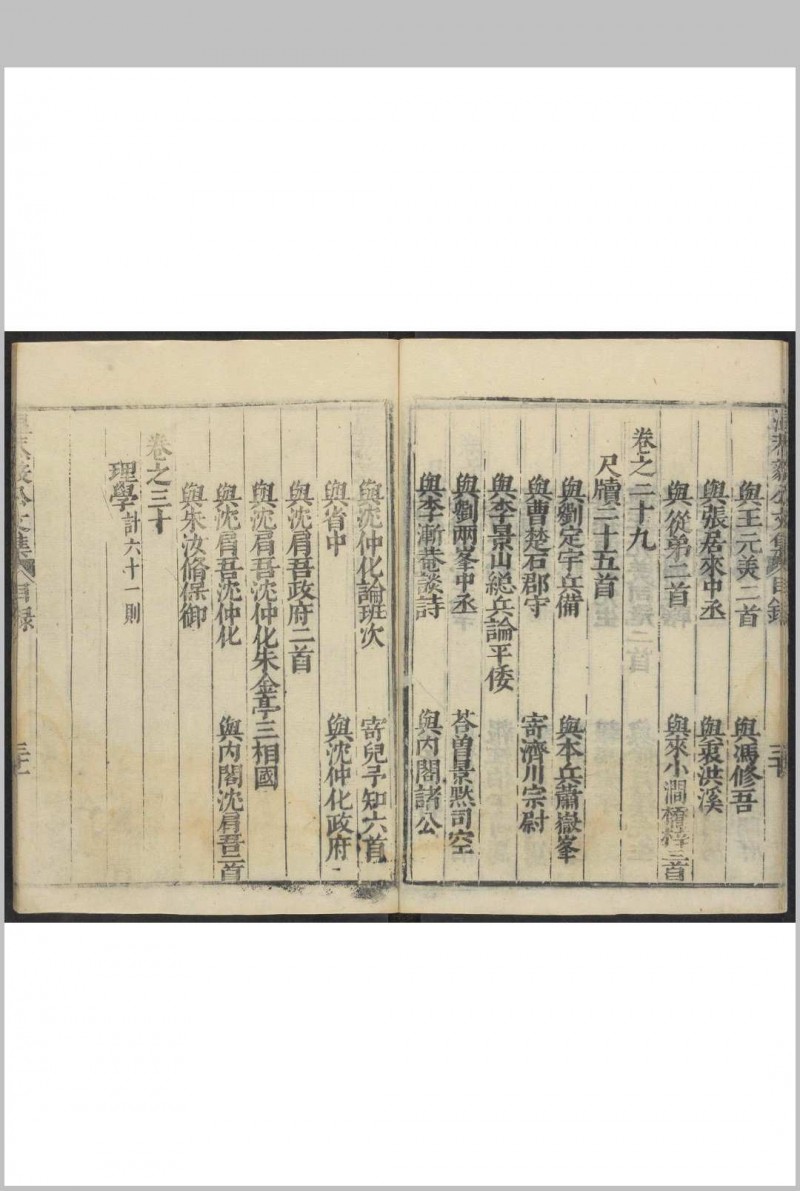 與王元美二首 與馮修吾
與張居來中丞 與袁洪溪
與從弟二首 與來小澗 三首
卷之二十九
尺牘二十五首
與劉定宇兵備 與本兵蕭嶽峯
與曹楚石郡守 寄濟川宗尉
與李景山総兵論平倭
與劉兩峯中丞 荅曽景黙司空
與李漸菴談詩 與內閣諸公
目錄
三十
與沈仲化論班次 寄兒子知六首
與省中 與沈仲化政府
與沈肩吾政府二首
與沈肩吾沈仲化朱金亭三相國
與沈肩吾沈仲化 與內閣沈肩吾三首
與朱汝脩保御
卷之三十
理學計六十一則
公文集 目錄